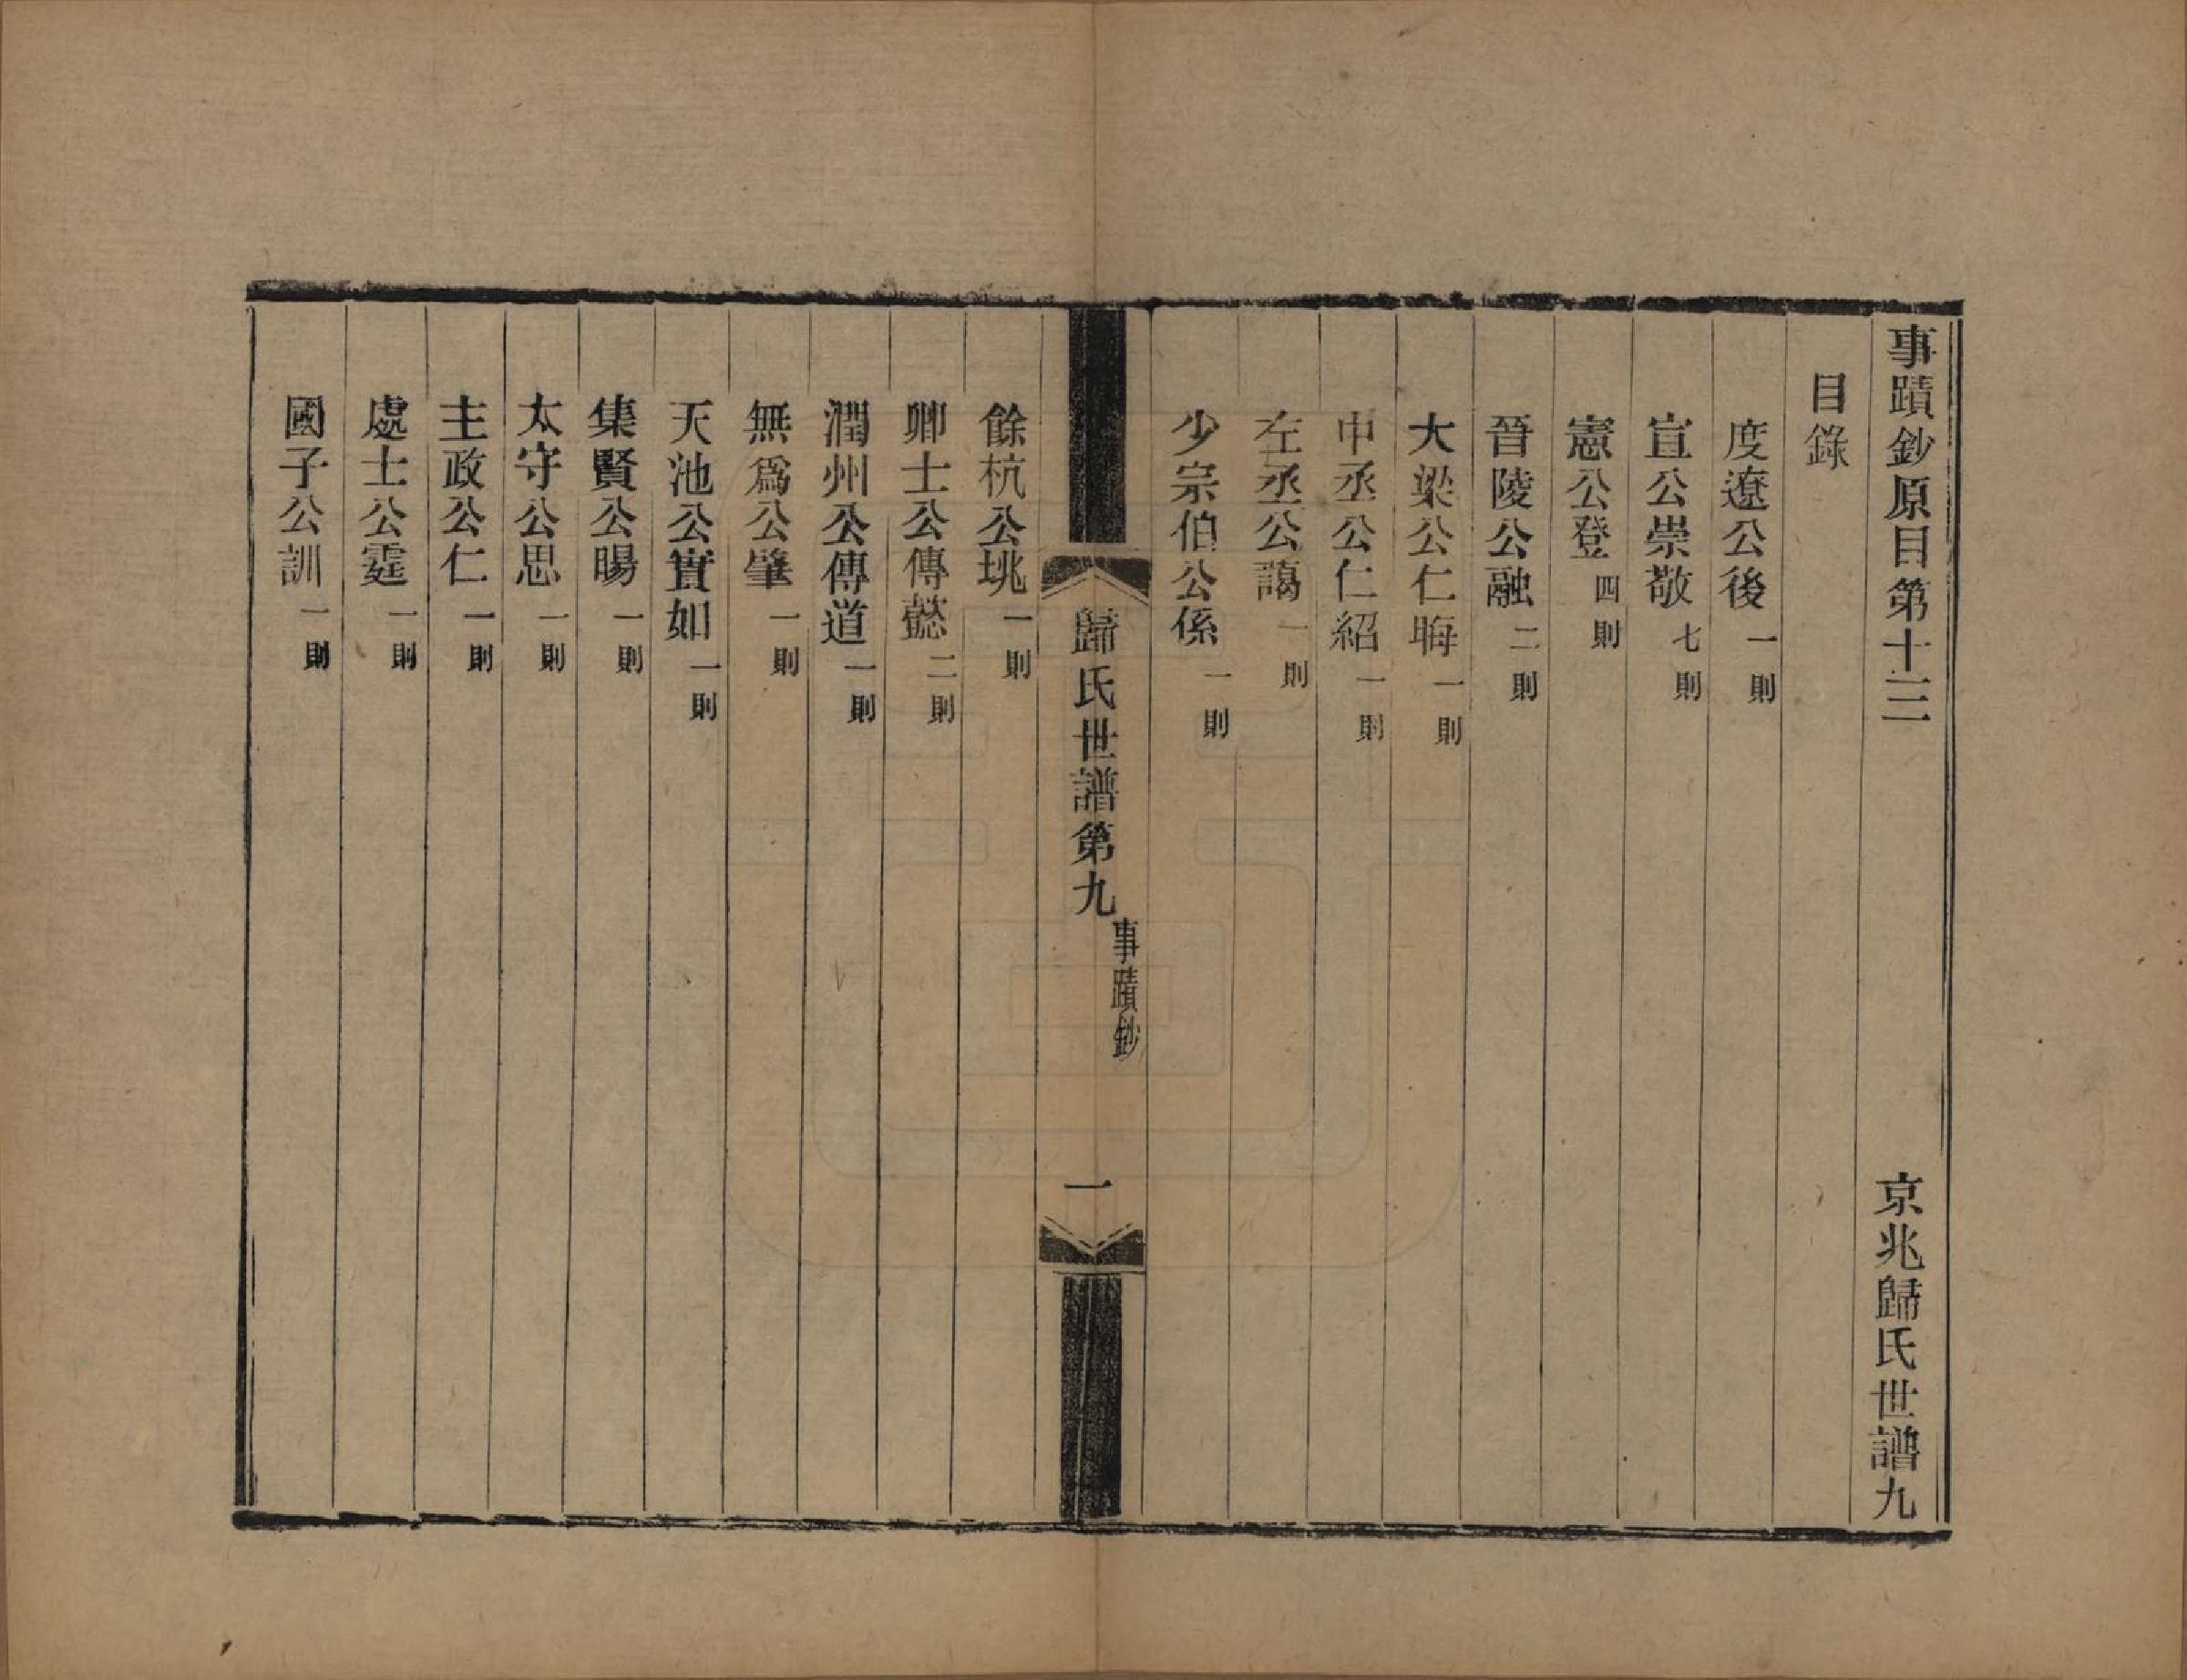 事蹟鈔原目第十三 京兆歸氏世譜九
目錄
度遼公後一則
宣公崇敬七則
憲公登四則
晉陵公融二則
大梁公仁晦一則
中丞公仁紹一則
左丞公藹一則
少宗伯公係一則
歸氏世譜第九 事蹟鈔 一
餘杭公珧一則
卿士公傳懿二則
潤州公傳道一則
無爲公肇一則
天池公實如一則
集賢公暘一則
太守公思一則
主政公仁一則
處士公霆一則
國子公訓一則